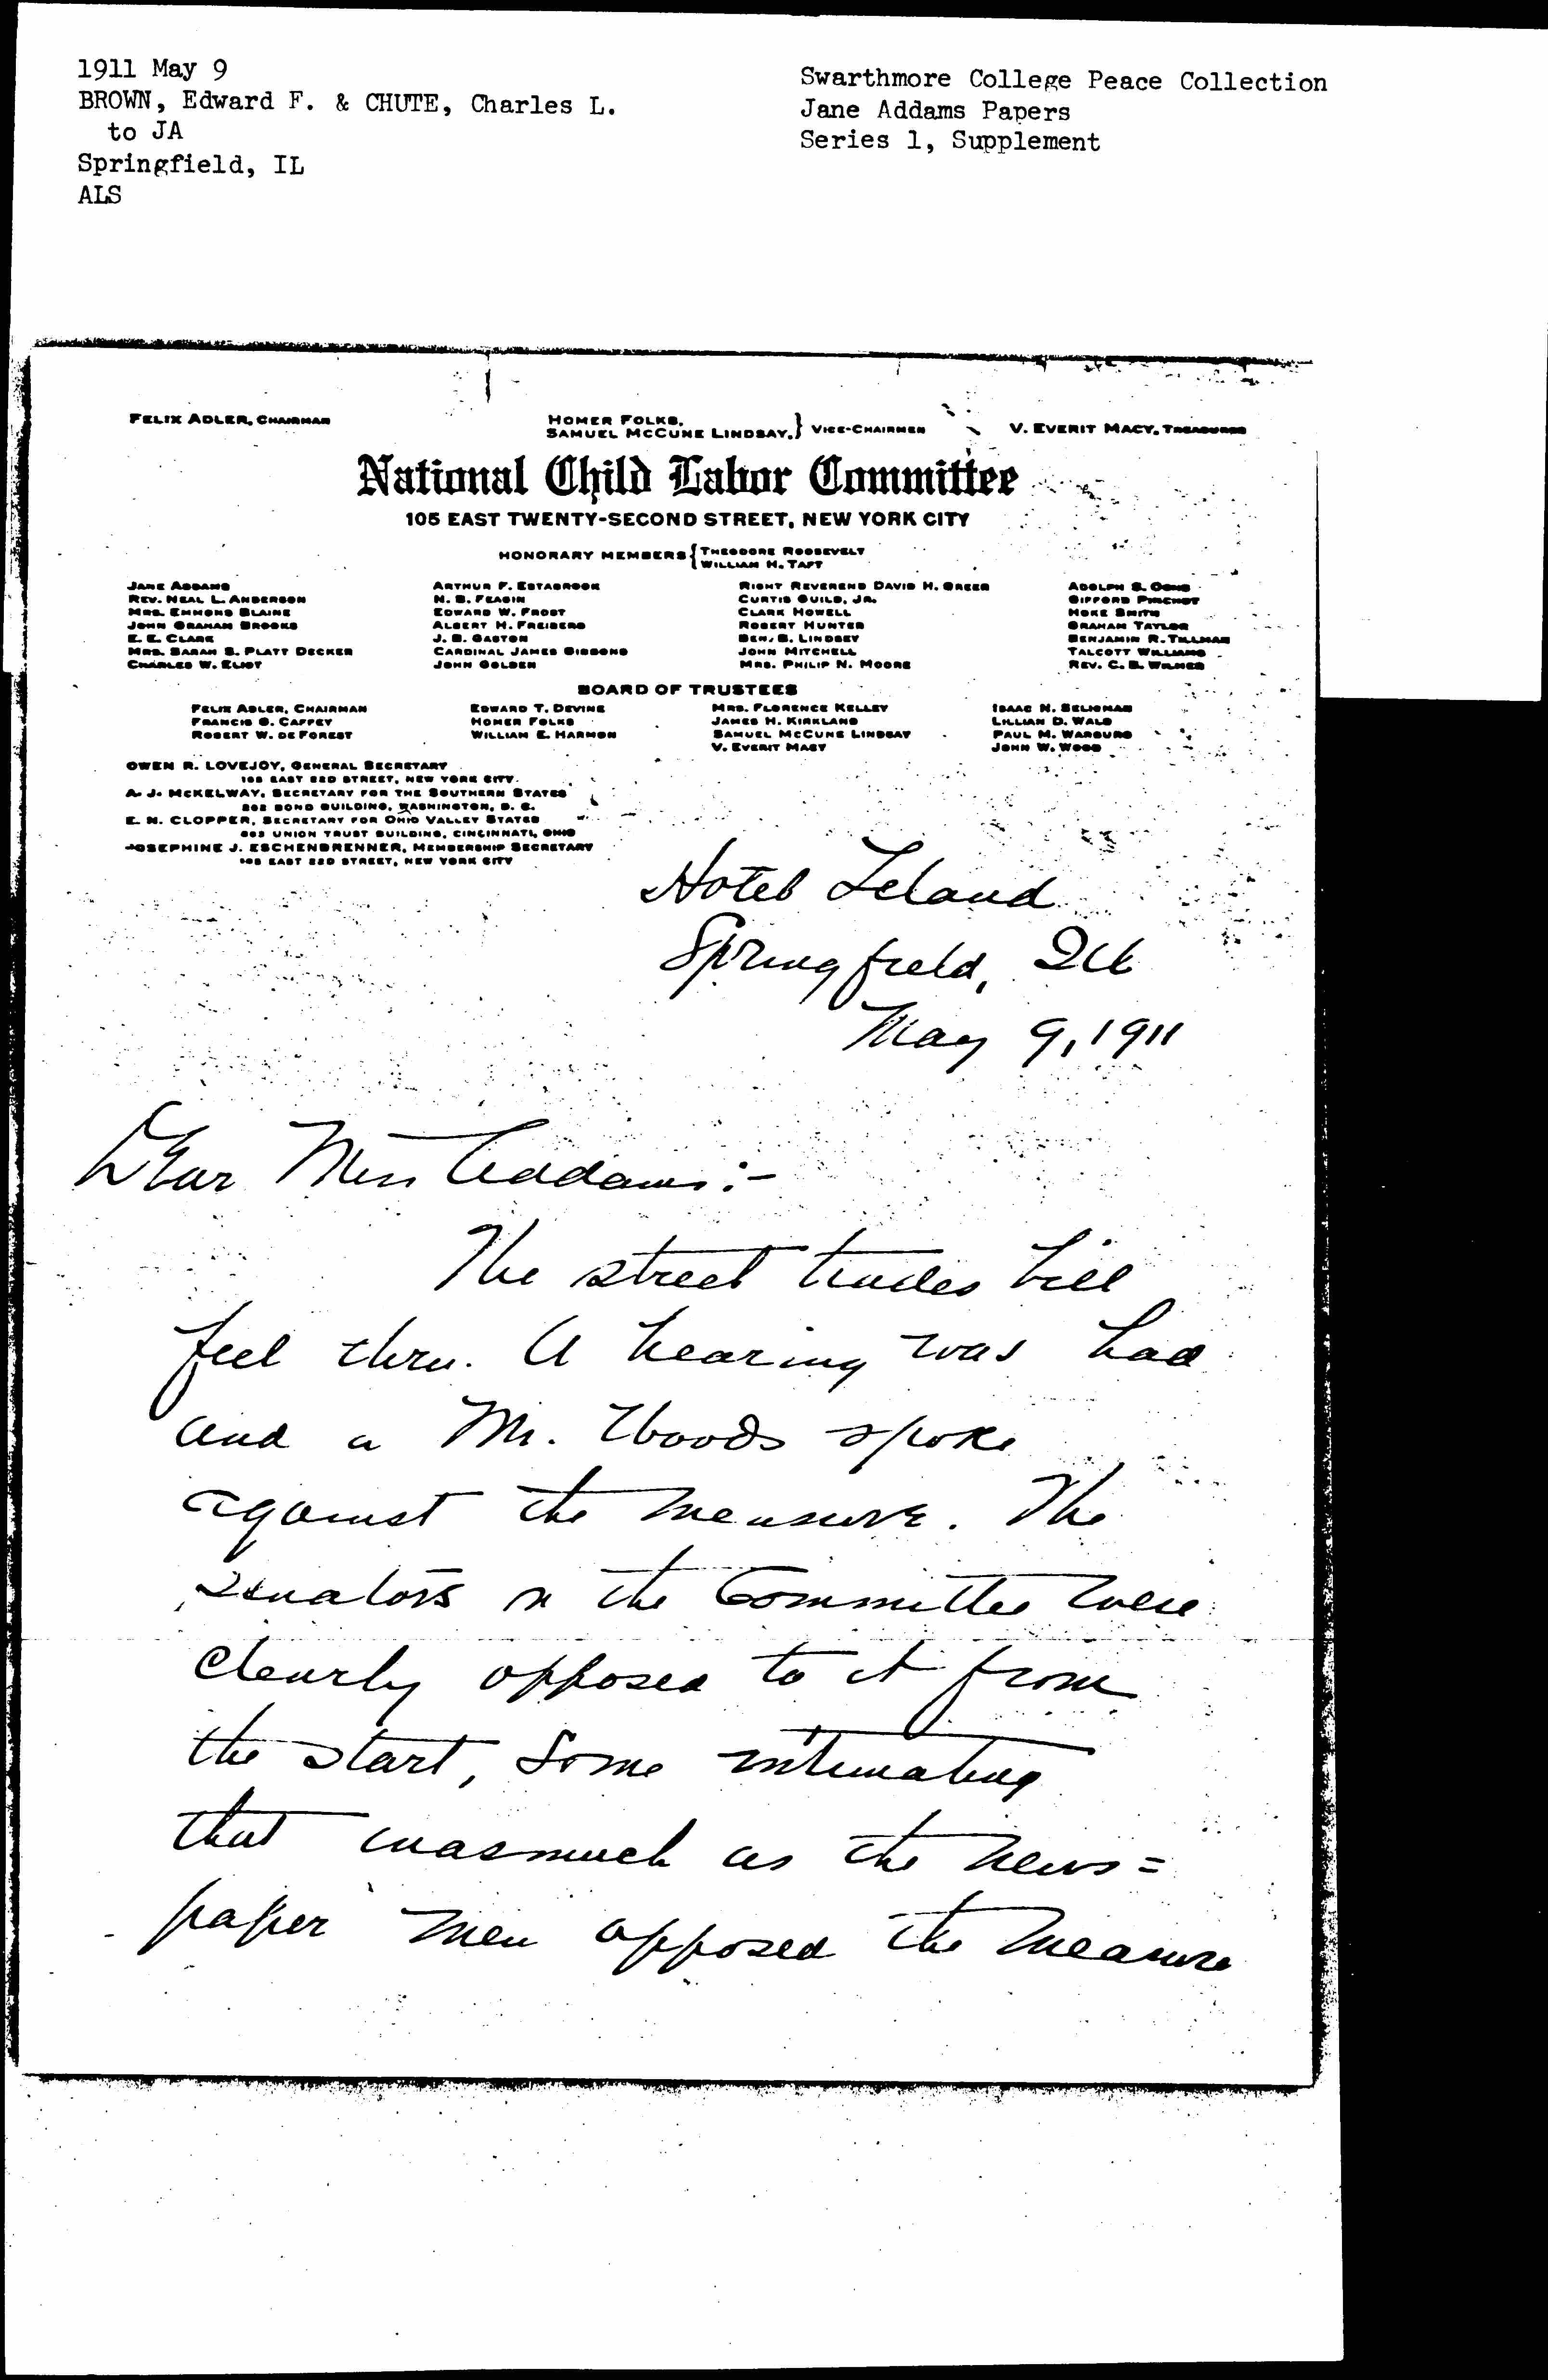 1911 May 9
BROWN, Edward F. & CHUTE, Charles L.
to JA
Springfield, IL
ALS
Swarthmore College Peace Collection
Jane Addams Papers
Series 1, Supplement
FELIX ADLER, CHAIRMAN
HOMER FOLKS,
SAMUEL MCCUNE LINDSAY, } VICE-CHAIRMEN
V. EVERIT MACY, TREASURER
National Child Labor Committee
105 EAST TWENTY-SECOND STREET, NEW YORK CITY
HONORARY MEMBERS { THEODORE ROOSEVELT
WILLIAM H. TAFT
JANE ADDAMS
REV. NEAL L. ANDERSON
MRS. EMMONS BLAINE
JOHN GRAHAM BROOKS
E. E. CLARK
MRS. SARAH S. PLATT DECKER
CHARLES W. ELIOT
ARTHUR F. ESTABROOK
N. B. FEAGIN
EDWARD W. FROST
ALBERT H. FREIBERG
J. B. GASTON
CARDINAL JAMES GIBBONS
JOHN GOLDEN
RIGHT REVEREND DAVID H. GREER
CURTIS GUILD, JR.
CLARK HOWELL
ROBERT HUNTER
BEN. B. LINDSEY
JOHN MITCHELL
MRS. PHILIP N. MOORE
ADOLPH S. OCHS
GIFFORD PINCHOT
HOKE SMITH
GRAHAM TAYLOR
BENJAMIN R. TILLMAN
TALCOTT WILLIAMS
REV. C. B. WILMER
BOARD OF TRUSTEES
FELIX ADLER, CHAIRMAN
FRANCIS G. CAFFEY
ROBERT W. DE FOREST
EDWARD T. DEVINE
HOMER FOLKS
WILLIAM E. HARMON
MRS. FLORENCE KELLEY
JAMES H. KIRKLAND
SAMUEL MCCUNE LINDSAY
V. EVERIT MACY
ISAAC N. SELIGMAN
LILLIAN D. WALD
PAUL M. WARBURG
JOHN W. WOOD
OWEN R. LOVEJOY, GENERAL SECRETARY
105 EAST 22D STREET, NEW YORK CITY
A. J. MCKELWAY, SECRETARY FOR THE SOUTHERN STATES
202 BOND BUILDING, WASHINGTON, D. C.
E. N. CLOPPER, SECRETARY FOR OHIO VALLEY STATES
UNION TRUST BUILDING, CINCINNATI, OHIO
JOSEPHINE J. ESCHENBRENNER, MEMBERSHIP SECRETARY
105 EAST 22D STREET, NEW YORK CITY
Hotel Leland
Springfield, Ill
May 9, 1911
Dear Miss Addams:-
The street trades bill
feel thru. A hearing was had
and a Mr. Woods spoke
against the measure. The
senators on the Committee were
clearly opposed to it from
the start, some intimating
that inasmuch as the news=
paper men opposed the measure